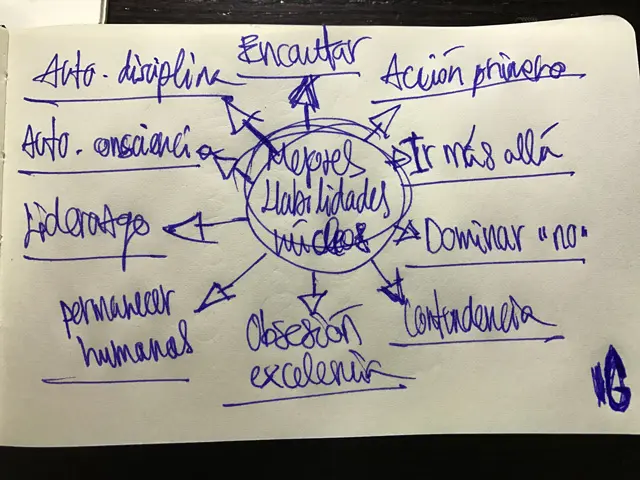 Auto-disciplina
Encauttar
Acción primero
Auto-consciencia
Mejores
Habilidades
Ir más allá
Liderazgo
Dominar "no"
permanecer
humanas
Obsesión
excelencia
Contendencia